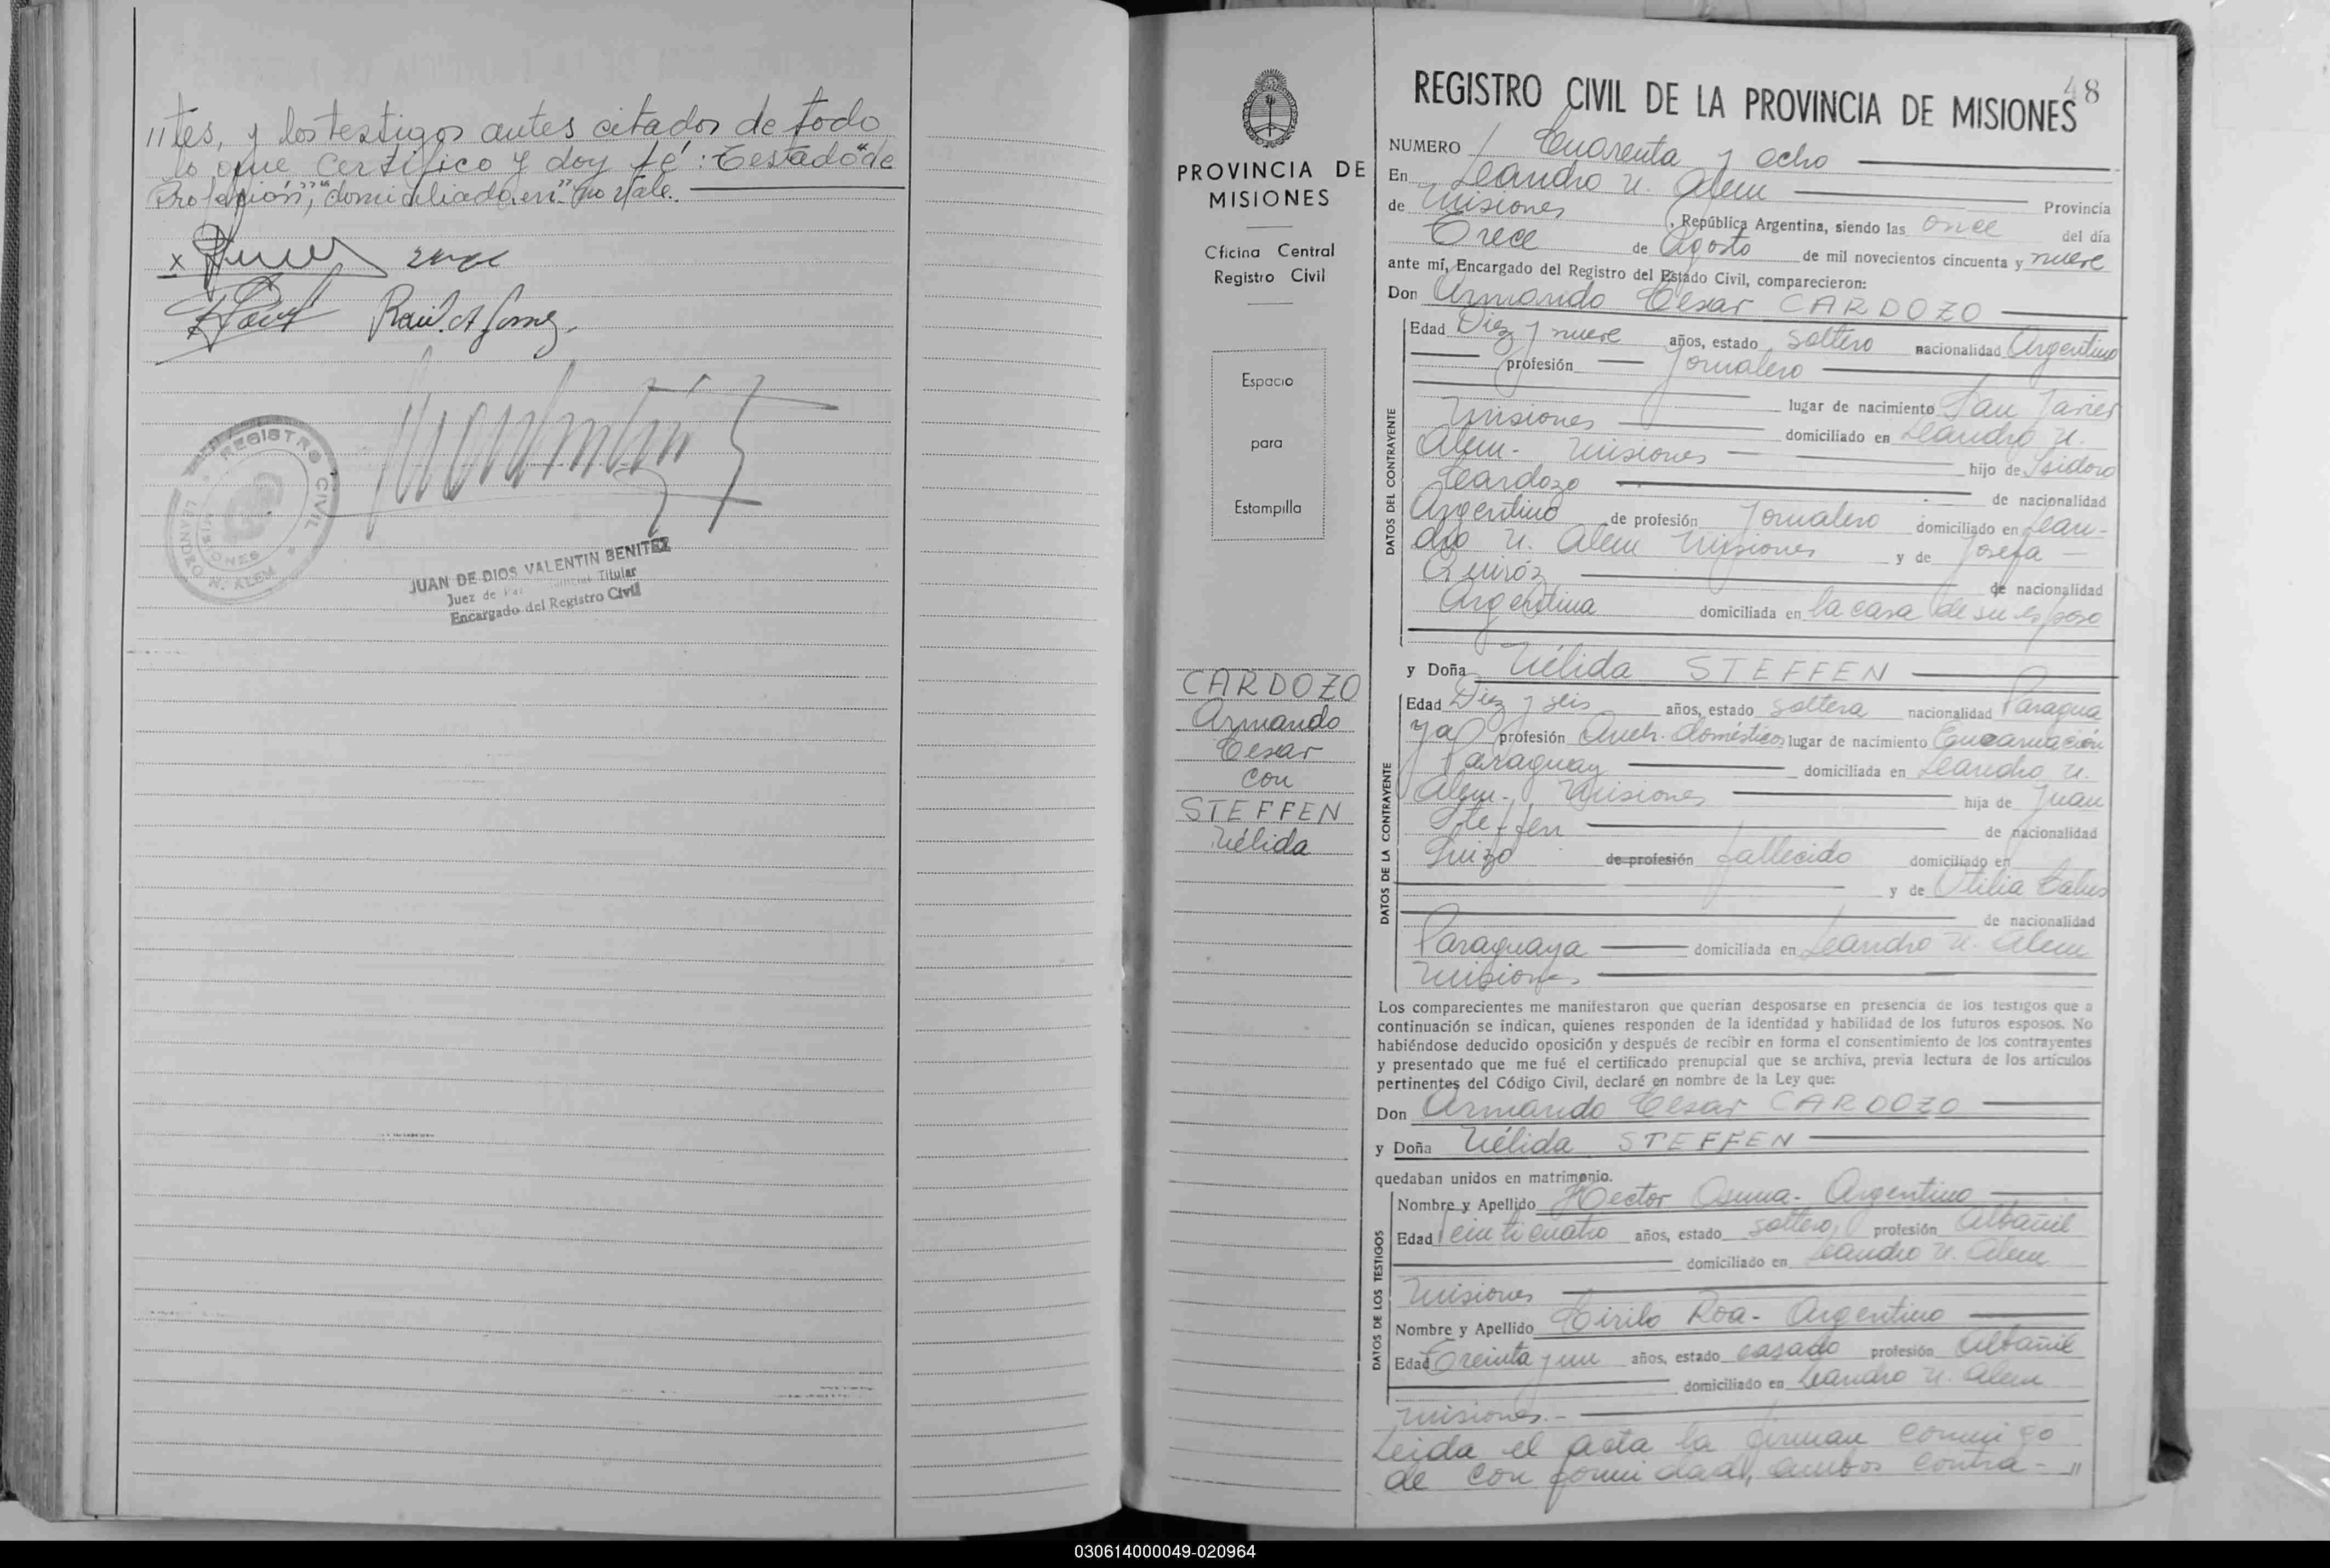 "tes, y los testigos antes citados de todo
lo que certifico y doy fé: Testado "de
Profesión", "domiciliado en" no vale.
Raul A Gomez.
REGISTRO CIVIL
MISIONES
LEANDRO N. ALEM
JUAN DE DIOS VALENTIN BENITEZ
Juez de Paz Titular
Encargado del Registro Civil
PROVINCIA DE
MISIONES
Oficina Central
Registro Civil
Espacio
para
Estampilla
CARDOZO
Armando
Cesar
con
STEFFEN
Nélida
48
REGISTRO CIVIL DE LA PROVINCIA DE MISIONES
NUMERO Cuarenta y ocho
En Leandro N. Alem
de Misiones Provincia
, República Argentina, siendo las once del día
Trece de Agosto de mil novecientos cincuenta y nueve
ante mí, Encargado del Registro del Estado Civil, comparecieron:
Don Armando Cesar CARDOZO
DATOS DEL CONTRAYENTE
Edad Diez y nueve años, estado soltero nacionalidad Argentino
profesión Jornalero
lugar de nacimiento San Javier
Misiones domiciliado en Leandro N.
Alem - Misiones hijo de Isidoro
Cardozo de nacionalidad
Argentino de profesión Jornalero domiciliado en Lean-
dro N. Alem Misiones y de Josefa
Quiróz de nacionalidad
Argentina domiciliada en la casa de su esposo
y Doña Nélida STEFFEN
DATOS DE LA CONTRAYENTE
Edad Diez y seis años, estado soltera nacionalidad Paragua
ya profesión Queh. domésticos lugar de nacimiento Encarnación
Paraguay domiciliada en Leandro N.
Alem - Misiones hija de Juan
Steffen de nacionalidad
Suizo de profesión fallecido domiciliado en
y de Otilia
de nacionalidad
Paraguaya domiciliada en Leandro N. Alem
Misiones
Los comparecientes me manifestaron que querían desposarse en presencia de los testigos que a
continuación se indican, quienes responden de la identidad y habilidad de los futuros esposos. No
habiéndose deducido oposición y después de recibir en forma el consentimiento de los contrayentes
y presentado que me fué el certificado prenupcial que se archiva, previa lectura de los artículos
pertinentes del Código Civil, declaré en nombre de la Ley que:
Don Armando Cesar CARDOZO
y Doña Nélida STEFFEN
quedaban unidos en matrimonio.
DATOS DE LOS TESTIGOS
Nombre y Apellido Hector Osuna - Argentino
Edad Veinticuatro años, estado soltero, profesión Albañil
domiciliado en Leandro N. Alem
Misiones
Nombre y Apellido Cirilo Roa - Argentino
Edad Treinta y un años, estado casado profesión Albañil
domiciliado en Leandro N. Alem
Misiones. -
Leida el acta la firman conmigo
de conformidad, ambos contra- "
030614000049-020964